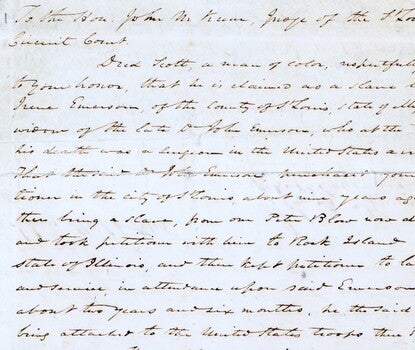 To the Hon. John M. Krum, Judge of the St Lo
Circuit Court.
Dred Scott, a man of color, respectful
to your honor, that he is claimed as a slave
Irene Emerson, of the County of St Louis, state of M
widow of the late Dr John Emerson, who at the
his death was a surgeon in the United States a
That the said Dr John Emerson purchased your
tioner in the city of St Louis, about nine years ag
then being a slave, from one Peter Blow now d
and took petitioner with him to Rock Island
state of Illinois, and then kept petitioner to la
and service, in attendance upon said Emerson
about two years and six months, he the said
being attached to the United States troops then